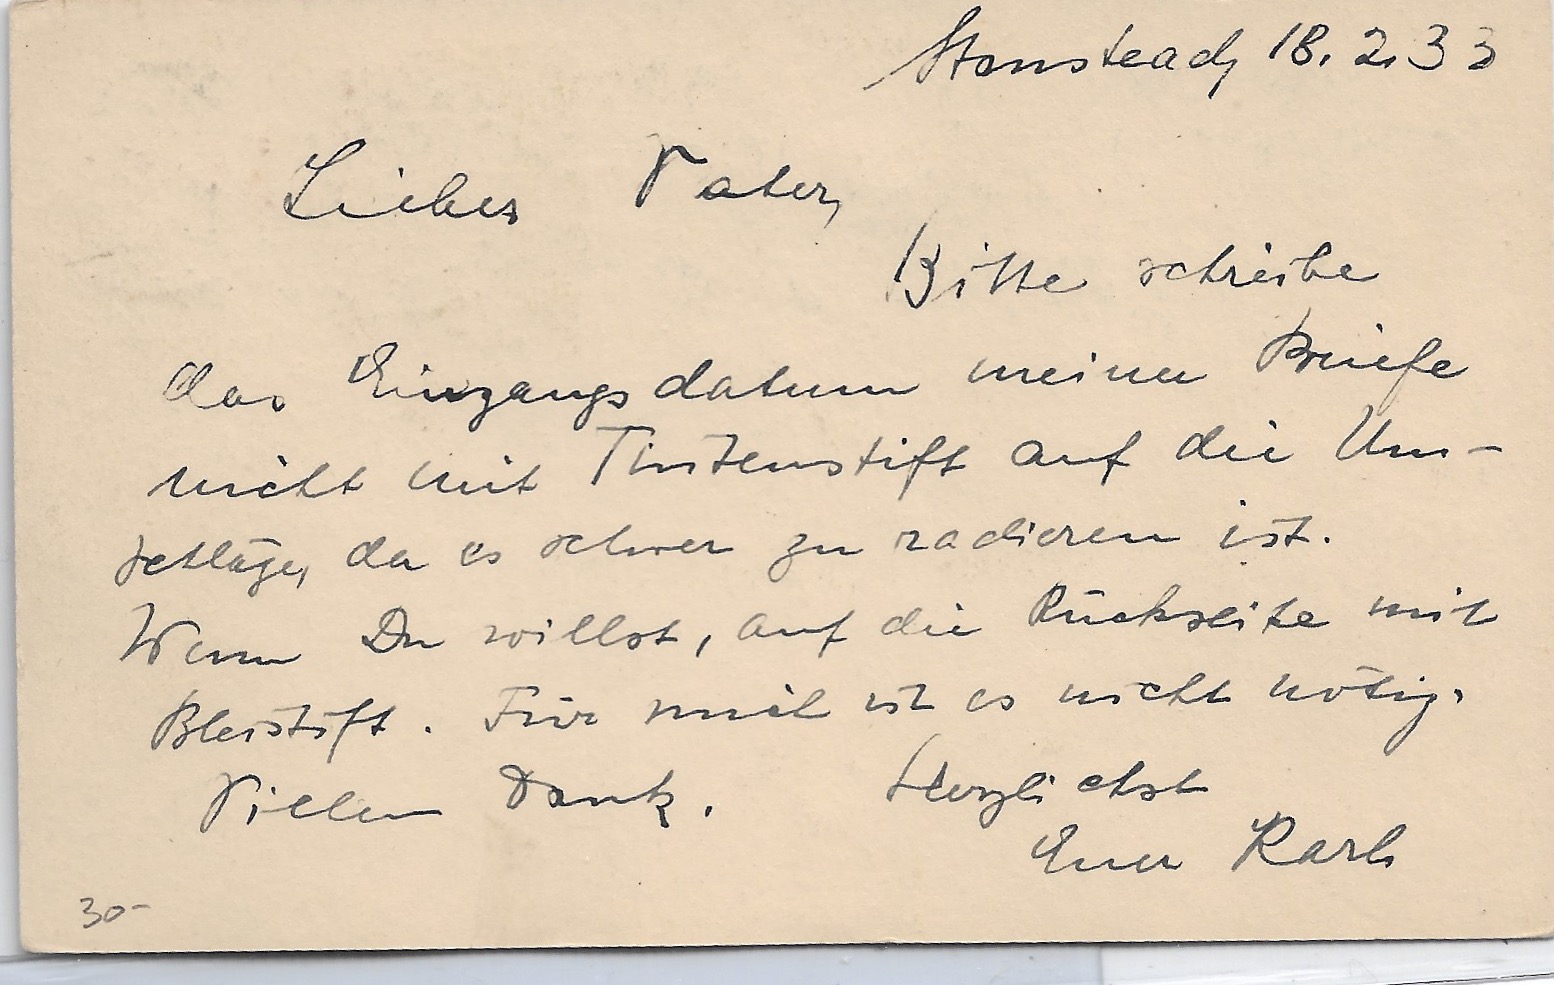 Stonstead, 18.2.33
Lieber Vater,
Bitte schreibe
das Eingangsdatum meiner Briefe
nicht mit Tintenstift auf die Um-
schläge, da es schwer zu radieren ist.
Wenn Du willst, auf die Rückseite mit
Bleistift. Für mich ist es nicht nötig.
Vielen Dank. Herzlichst
Euer Karl
30-